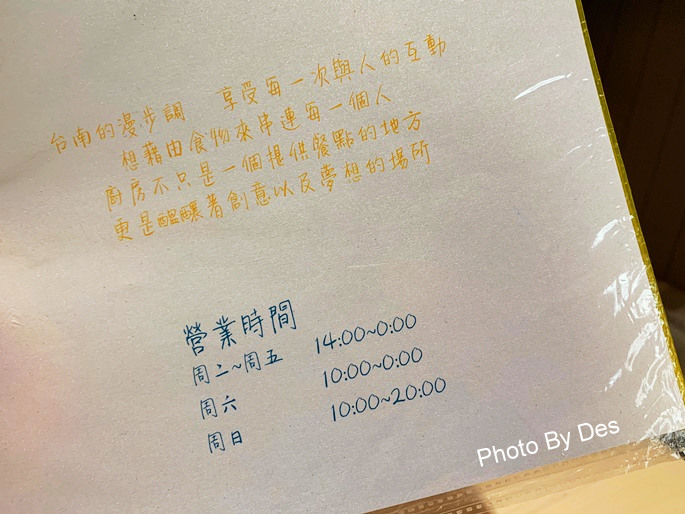 台南的漫步調　享受每一次與人的互動
想藉由食物來串連每一個人
廚房不只是一個提供餐點的地方
更是醞釀著創意以及夢想的場所
營業時間
周二~周五 14:00~0:00
周六 10:00~0:00
周日 10:00~20:00
Photo By Des